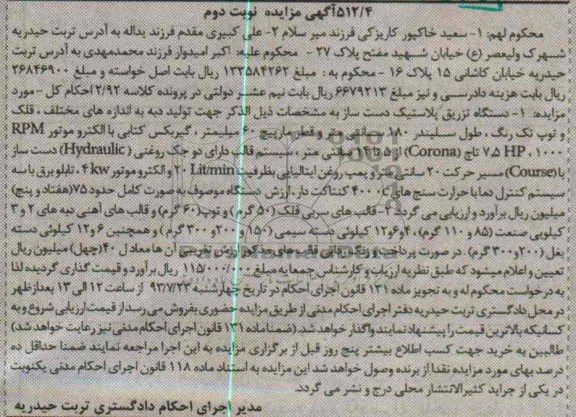 ۵۱۲/۴آگهی مزایده نوبت دوم
محکوم لهم: ۱- سعید خاکپور کاریزکی فرزند میر سلام ۲- علی کبیری مقدم فرزند یداله به آدرس تربت حیدریه
شهرک ولیعصر (ع) خیابان شهید مفتح پلاک ۲۷ - محکوم علیه: اکبر امیدوار فرزند محمدمهدی به آدرس تربت
حیدریه خیابان کاشانی ۱۵ پلاک ۱۶ - محکوم به : مبلغ ۱۳۳۵۸۴۲۶۲ ریال بابت اصل خواسته و مبلغ ۲۶۸۴۶۹۰۰
ریال بابت هزینه دادرسی و نیز مبلغ ۶۶۷۹۲۱۳ ریال بابت نیم عشر دولتی در پرونده کلاسه ۲/۹۲ احکام کل - مورد
مزایده: ۱- دستگاه تزریق پلاستیک دست ساز به مشخصات ذیل الذکر جهت تولید دبه به اندازه های مختلف ، قلک
و توپ تک رنگ ، طول سیلندر ۱۸۰ سانتی متر و قطر مارپیچ ۶۰ میلیمتر ، گیربکس کتابی با الکترو موتور RPM
۷.۵ HP ، ۱۰۰۰ تاج (Corona) از ۵ تا ۱۴ سانتی متر ، سیستم قالب دارای دو جک روغنی (Hydraulic) دست ساز
با (Course) مسیر حرکت ۲۰ سانتی متر و پمپ روغن ایتالیایی بظرفیت ۲۰ Lit/min و الکترو موتور ۴kw ، تابلو برق با سه
سیستم کنترل دما با حرارت سنج های تا ۴۰۰ کنتاکت دار، ارزش دستگاه موصوف به صورت کامل حدود ۷۵(هفتاد و پنج)
میلیون ریال برآورد و ارزیابی می گردد. ۲- قالب های سربی قلک (۵۰ گرم) و توپ (۶۰ گرم) و قالب های آهنی دبه های ۲ و ۳
کیلویی صنعت (۸۵ و ۱۱۰ گرم)، ۴و۶و۱۲ کیلوئی دسته سیمی (۱۵۰و۲۰۰و۳۰۰ گرم) و همچنین ۶ و۱۲ کیلوئی دسته
بغل (۲۰۰و۳۰۰ گرم). در صورت پرداخت و رنگ زدایی قالب های مذکور ارزش تقریبی آن ها معادل ۴۰(چهل) میلیون ریال
تعیین و اعلام میشود که طبق نظریه ارزیاب و کارشناس جمعا به مبلغ ۱۱۵/۰۰۰/۰۰۰ ریال برآورد و قیمت گذاری گردیده لذا
به درخواست محکوم له و به تجویز ماده ۱۳۱ قانون اجرای احکام در تاریخ چهارشنبه ۹۳/۷/۲۳ از ساعت ۱۲ الی ۱۳ بعدازظهر
در محل دادگستری تربت حیدریه دفتر اجرای احکام مدنی از طریق مزایده حضوری بفروش می رسد از قیمت ارزیابی شروع و به
کسانیکه بالاترین قیمت را پیشنهاد نمایند واگذار خواهد شد. (ضمنا ماده ۱۳۱ قانون اجرای احکام مدنی نیز رعایت خواهد شد)
طالبین به خرید جهت کسب اطلاع بیشتر پنج روز قبل از برگزاری مزایده به این اجرا مراجعه نمایند ضمنا حداقل ده
درصد بهای مورد مزایده نقدا از برنده وصول خواهد شد این مزایده به استناد ماده ۱۱۸ قانون اجرای احکام مدنی یکنوبت
در یکی از جراید کثیرالانتشار محلی درج و نشر می گردد.
مدیر اجرای احکام دادگستری تربت حیدریه